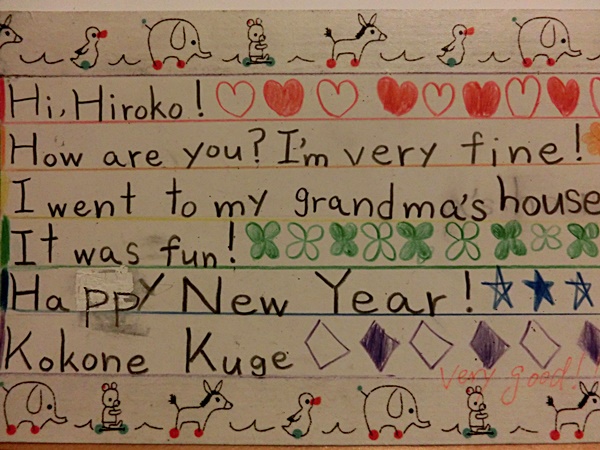 Hi, Hiroko!
How are you? I'm very fine!
I went to my grandma's house
It was fun!
Happy New Year!
Kokone Kuge
very good!!